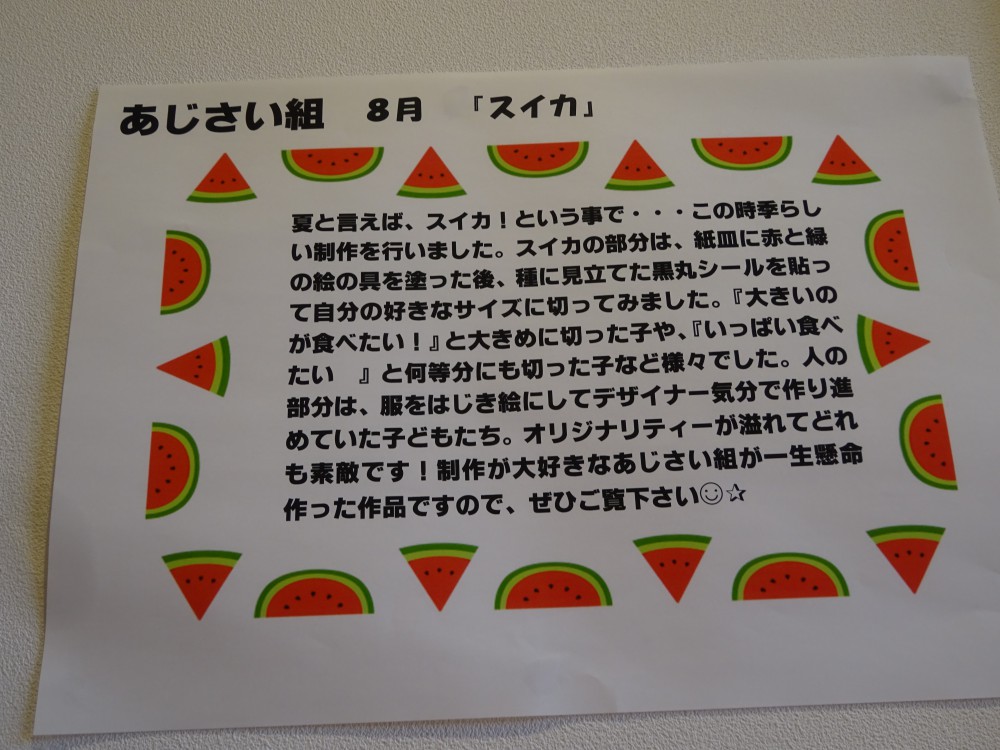 あじさい組　８月　『スイカ』
夏と言えば、スイカ！という事で・・・この時季らし
い制作を行いました。スイカの部分は、紙皿に赤と緑
の絵の具を塗った後、種に見立てた黒丸シールを貼っ
て自分の好きなサイズに切ってみました。『大きいの
が食べたい！』と大きめに切った子や、『いっぱい食べ
たい　』と何等分にも切った子など様々でした。人の
部分は、服をはじき絵にしてデザイナー気分で作り進
めていた子どもたち。オリジナリティーが溢れてどれ
も素敵です！制作が大好きなあじさい組が一生懸命
作った作品ですので、ぜひご覧下さい☺☆